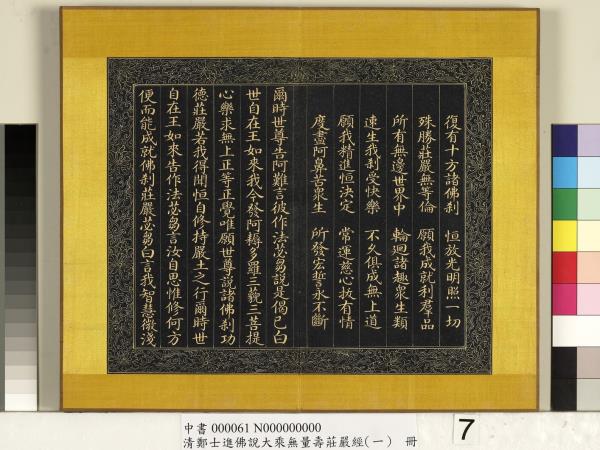 復有十方諸佛刹　恒放光明照一切
殊勝莊嚴無等倫　願我成就利羣品
所有無邊世界中　輪迴諸趣衆生類
速生我刹受快樂　不久俱成無上道
願我精進恒決定　常運慈心拔有情
度盡阿鼻苦衆生　所發宏誓永不斷
爾時世尊告阿難言彼作法苾芻說是偈已白
世自在王如來我今發阿耨多羅三藐三菩提
心樂求無上正等正覺唯願世尊說諸佛刹功
德莊嚴若我得聞恒自修持嚴土之行爾時世
自在王如來告作法苾芻言汝自思惟修何方
便而能成就佛刹莊嚴苾芻白言我智慧微淺
中書 000061 N000000000
清鄭士進佛說大乘無量壽莊嚴經(一)　冊
7